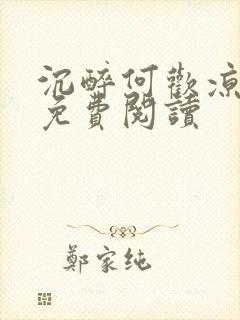 沉醉何歡涼
免費閱讀
鄭家純